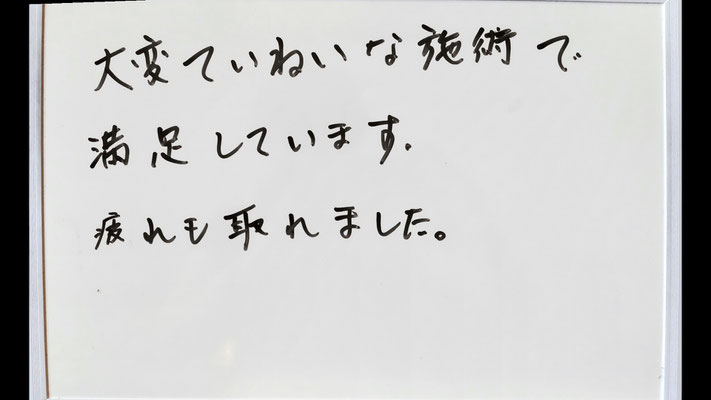 大変ていねいな施術で
満足しています.
疲れも取れました。